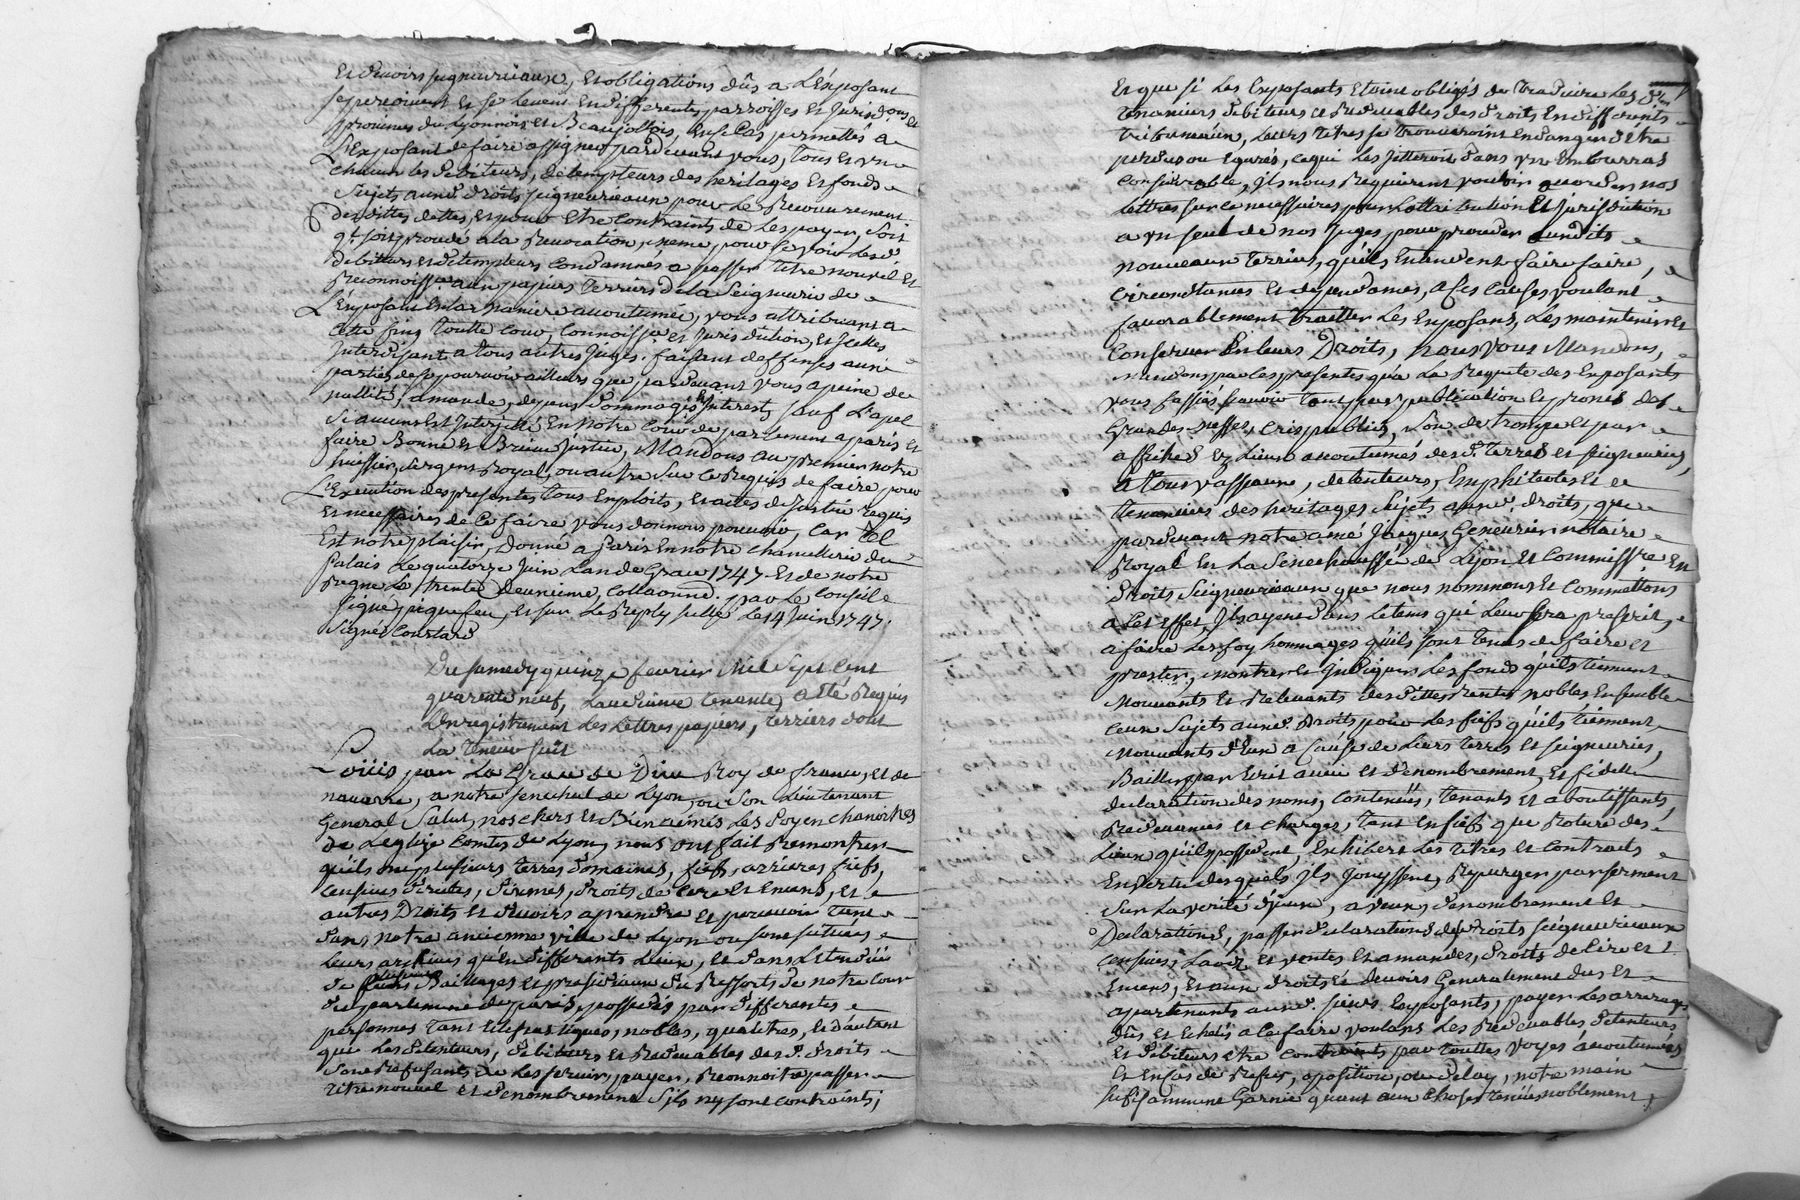 Et devoirs seigneuriaux, Et obligations dûs a L'Exposant
se percoivent Et se Levent En differentes parroisses et Jurisdons et
provinces du Lyonnois et Beaujollois, En se Cas permettés a
L'Exposant de faire assigner pardevant vous, tous et un
chacun les debiteurs, detempteurs des heritages Et fonds
Sujets auxd. droits seigneuriaux pour Le Recouvrement
desdittes dettes, Et pour Etre Contraints de Les payer, soit
qt. soit procedé a la Revocation, mesme pour se voir Lesd.
debiteurs et detempteurs Condamnés a passer titre nouvel et
Reconnoissce aux papiers terriers de la Seigneurie de
L'Exposant En la maniere accoutumée, vous attribuant a
Cette fin, toutte Cour, Connoissce et Jurisdiction, Et Icelles
Interdisant a tous autres Juges, faisant deffenses aux
parties de se pourvoir ailleurs que pardevant vous a peine de
nullité, amande, depens dommages Interests sauf L'apel
Si aucun Est Interjetté En notre Cour de parlement a paris et
faire Bonne et Brieve Justice, Mandons au premier notre
huissier, Sergent Royal, ou autre Sur ce Requis de faire pour
L'Execution des presentes tous Exploits, et actes de Justice requis
Et necessaires de Ce faire vous donnons pouvoir, Car tel
Est notre plaisir, Donné a Paris En notre chancellerie du
Palais Le quatorze Juin L'an de Grace 1747 Et de notre
Regne Le trente deuxieme, Collationné. par Le Conseil
Signé piquefeu, Et sur Le Reply scellé Le 14 Juin 1747.
Signé Coustard
Du samedy quinze fevrier Mil Sept Cent
quarente neuf, L'audiance tenante, a Eté Requis
L'Enregistrement des Lettres papiers, terriers dont
La teneur suit
Loüis par La Grace de Dieu Roy de france, et de
navarre, a notre senechal de Lyon, ou Son Lieutenant
General Salut, nos chers et Bien aimés Les Doyen chanoines
de L'eglize Comtes de Lyon, nous ont fait Remontrer
qu'ils ont plusieurs terres Domaines, fiefs, arrieres fiefs,
Censives Directes, Dixmes, droits de Cere et Emens, et
autres Droits et devoirs a prendre et percevoir tant
dans notre ancienne ville de Lyon ou sont situées
Leurs archives qu'en differents Lieux, et dans L'etendüe
de plusieurs Baillages et presidiaux du Ressorts de notre Cour
du parlement de paris, possedés par differantes
personnes tant Eclesiastiques, nobles, qu'autres, Et d'autant
que Les detenteurs, debiteurs et Redevables desd. droits
sont Refusants de Les servir, payer, Reconnoitre passer
titre nouvel et denombrement S'ils n'y sont contraints;
Et que si Les Exposants Etoint obligés de traduire Les d.
tenanciers debiteurs et Redevables des droits En differents
tribuneaux, Leurs titres se trouveroint En danger d'Etre
perdus ou Egarés, ce qui Les Jetteroit dans un Embarras
Considerable, Ils nous Requierent vouloir accorder nos
Lettres sur ce necessaires pour L'attribution Et Jurisdiction
a un seul de nos Juges, pour proceder auxdits
nouveaux terriers, qu'ils Entendent faire faire,
Circonstances Et dependances, A Ces Causes voulant
favorablement traitter Les Exposans, Les maintenir et
Conserver En leurs Droits, nous vous Mandons,
Mandons par Ces presentes qu'a La Requete des Exposants
vous fassiés scavoir tant par publication Et prones des
Grandes Messes, Cris publics, Son de trompe et par
affiches Ez Lieux accoutumés desd. terres et seigneuries,
a tous vassaux, detenteurs, Emphiteotes Et
tenanciers des heritages Sujets auxd. droits, que
pardevant notre amé Jacques Geneurier notaire
Royal En La Senechaussée de Lyon Et Commissre En
Droits Seigneuriaux que nous nommons Et Commettons
a Cet effet, Ils ayent dans Le tems qui Leur sera prescrit,
a faire Les foy hommages qu'ils sont tenus de faire et
prester, montrer et Indiquer Les fonds qu'ils tiennent
Mouvants et Relevants desdittes Rentes nobles Ensemble
Ceux Sujets auxd. Droits pour Les fiefs qu'ils tiennent
Mouvants d'Eux a Cause de Leurs terres et seigneuries,
Bailler par Ecrit aveu et denombrement, et fidelle
declaration des noms, Contenües, tenants et aboutissants,
Redevances et charges, tant En fiefs que Roture des
Lieux qu'ils possedent, Exhiber Les titres et Contrats
En vertu desquels Ils Jouyssent, se purger par serment
Sur La verité d'yceux, aveux, denombrement Et
Declarations, passer declarations desd. droits seigneuriaux
censives, Lavoz et ventes et amandes, droits de Cire et
Emens, Et aux droits et devoirs Generalement dus Et
apartenants auxd. sieurs Exposants, payer Les arrerages
dûs et Echeüs a Ce faire voulons Les Redevables detenteurs
et debiteurs etre contraints par touttes voyes accoutumées
Et En Cas de Refus, oposition, ou delay, notre main
sufisamment Garnie quant aux Choses tenües noblement